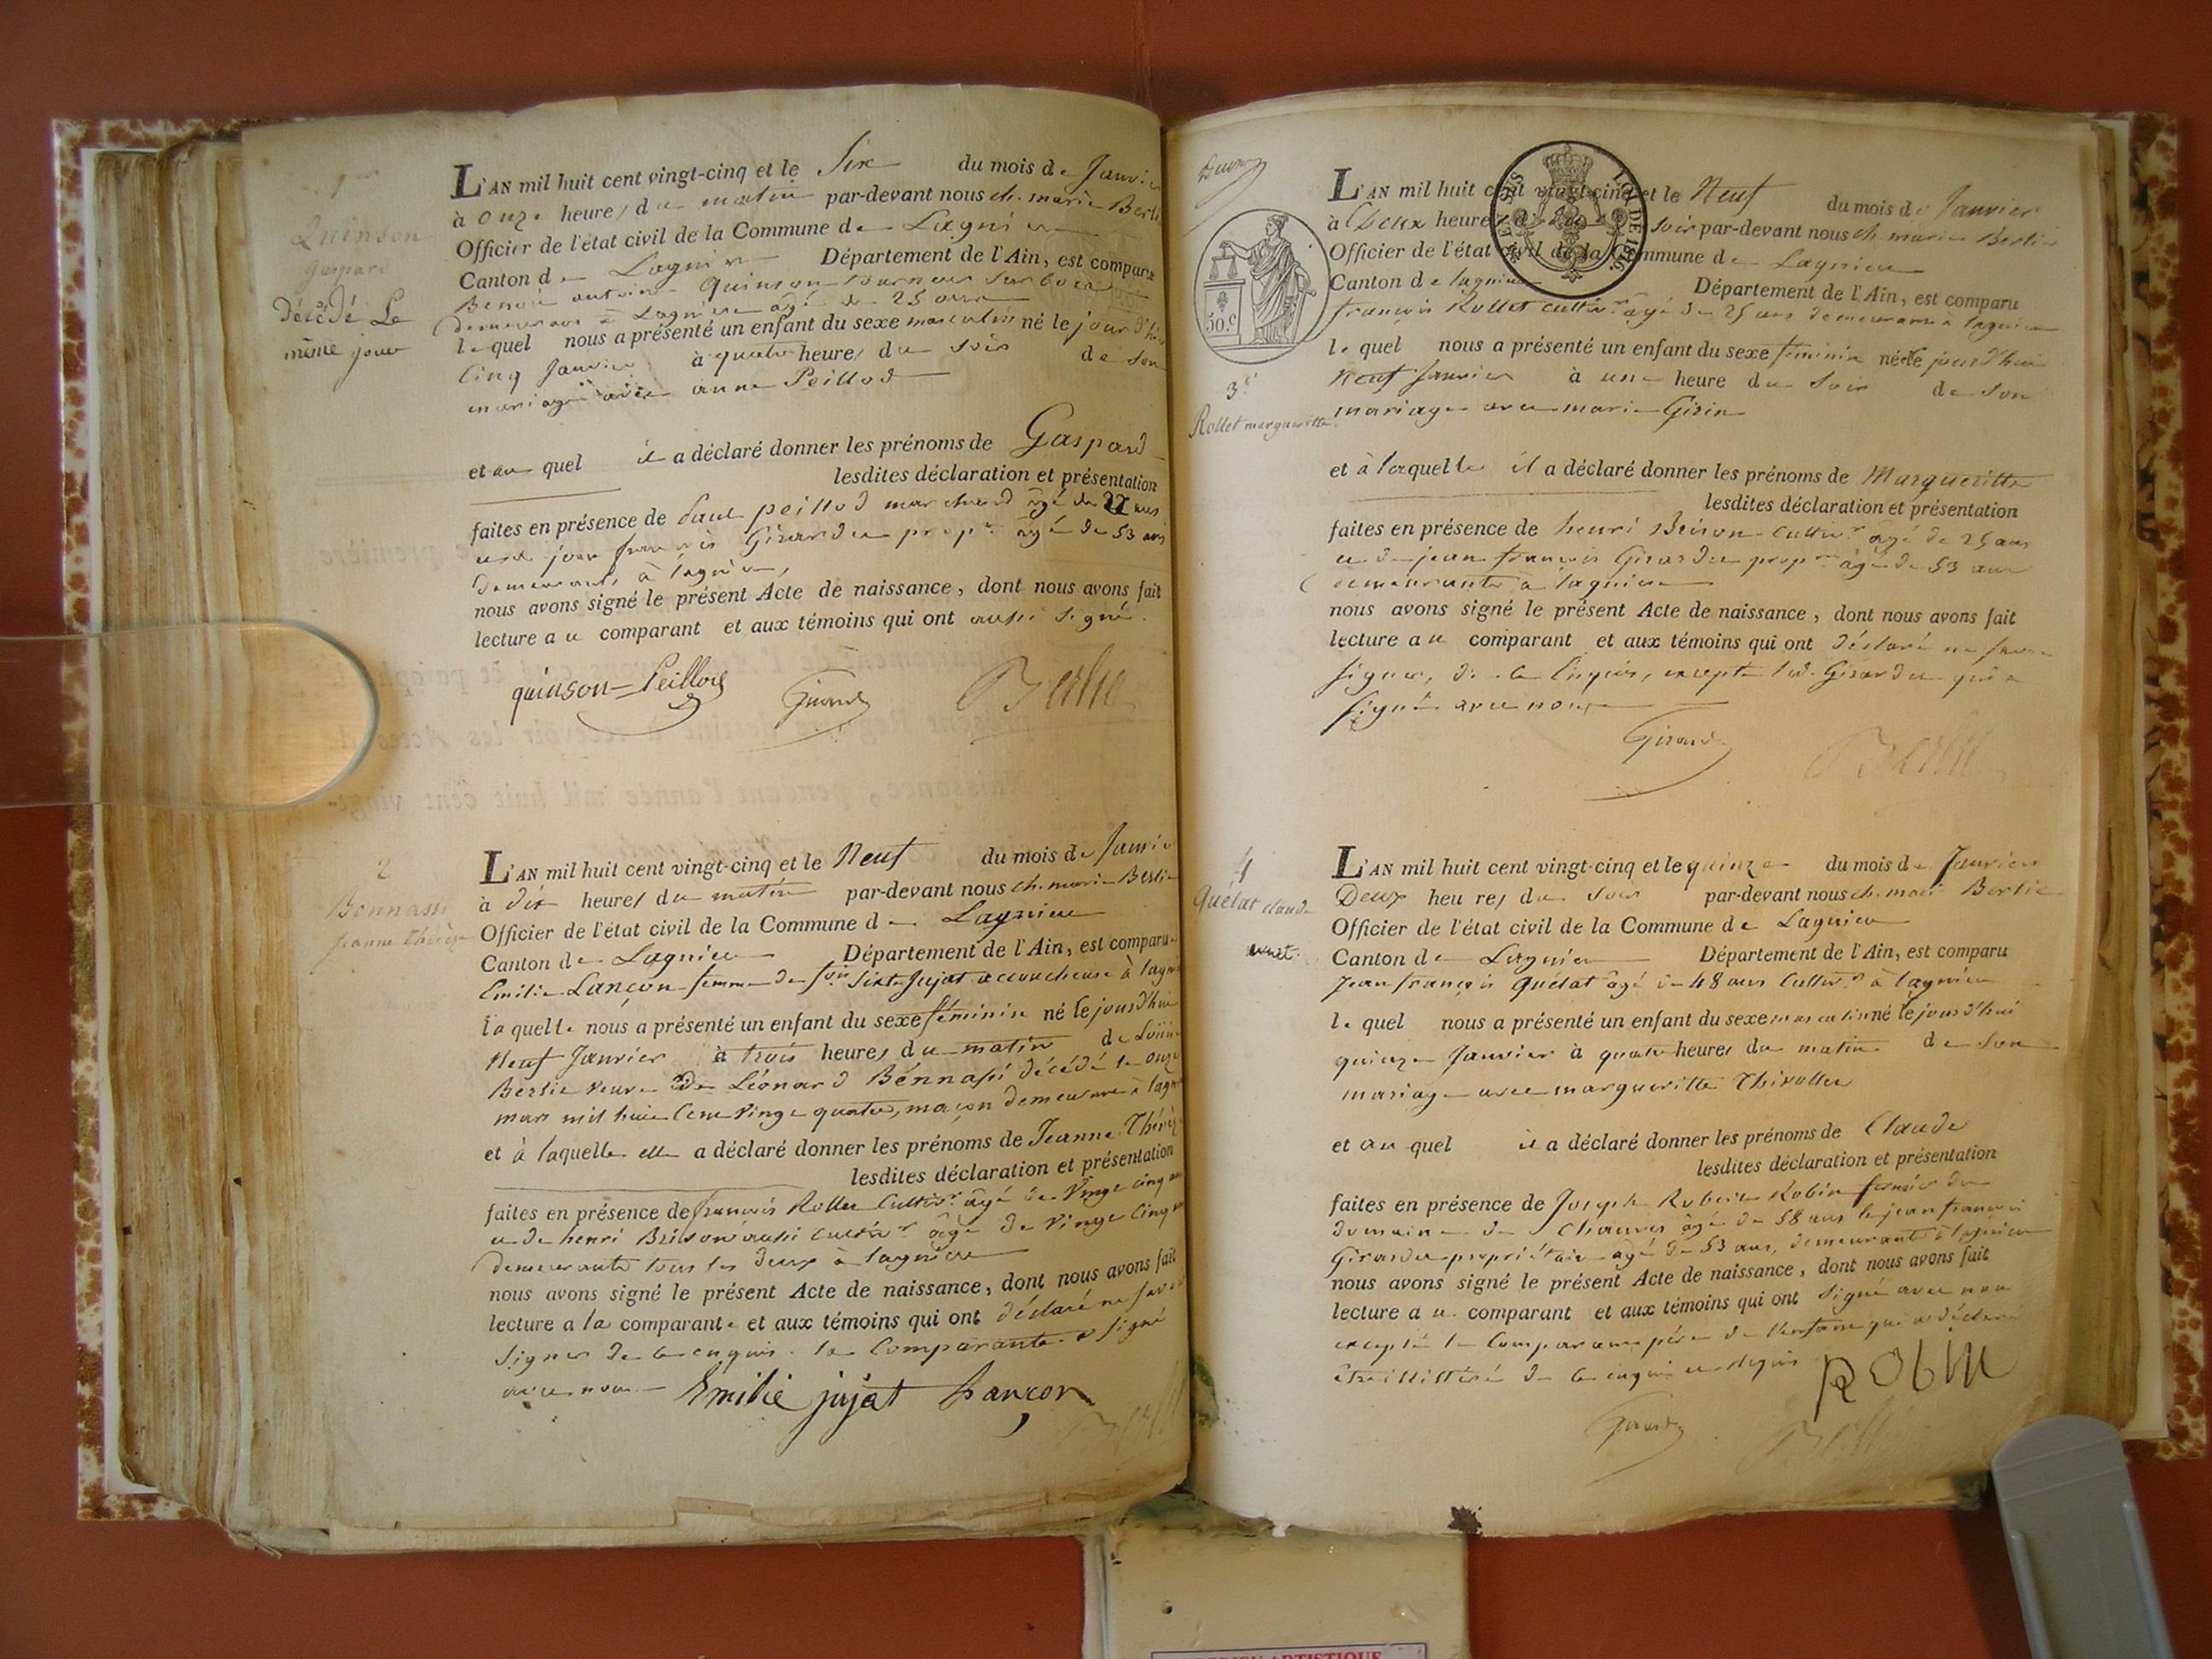 1er
Quinson
Gaspard
décédé Le
même jour
L'AN mil huit cent vingt-cinq et le Six du mois de Janvier
à onze heures du matin par-devant nous ch. marie Berlie
Officier de l'état civil de la Commune de Lagnieu
Canton de Lagnieu Département de l'Ain, est comparu
Benoit antoine Quinson tourneur sur bois
demeurant à Lagnieu âgé de 25 ans
lequel nous a présenté un enfant du sexe masculin né le jour d'hier
Cinq Janvier à quatre heures du soir de son
mariage avec anne Peillod
et au quel il a déclaré donner les prénoms de Gaspard
lesdites déclaration et présentation
faites en présence de Paul peillod marchand âgé de ans
et de jean françois Girardet propre âgé de 53 ans
demeurants à lagnieu,
nous avons signé le présent Acte de naissance, dont nous avons fait
lecture au comparant et aux témoins qui ont aussi signé.
quinson Peillod Girardet Berlie
2
Bonnassi
jeanne thérèse
L'AN mil huit cent vingt-cinq et le Neuf du mois de Janvier
à dix heures du matin par-devant nous ch. marie Berlie
Officier de l'état civil de la Commune de Lagnieu
Canton de Lagnieu Département de l'Ain, est comparue
Emilie Lançon femme de Sixte Jujat accoucheuse à lagnieu
laquelle nous a présenté un enfant du sexe féminin né le jourd'hui
Neuf Janvier à trois heures du matin de Louise
Berlie veuve de Léonard Bennassi décédé le onze
mars mil huit Cent vingt quatre, maçon demeurant à lagnieu
et à laquelle elle a déclaré donner les prénoms de Jeanne Thérèse
lesdites déclaration et présentation
faites en présence de françois Rollet Cultivr âgé de vingt cinq ans
et de henri Brison aussi cultivr âgé de vingt cinq ans
demeurants tous les deux à lagnieu
nous avons signé le présent Acte de naissance, dont nous avons fait
lecture a la comparante et aux témoins qui ont déclaré ne savoir
signer de ce enquis. la Comparante a signé
avec nous
Emilie jujat Lançon
Berlie
TIMBRE LOI DE 1816.
50.c
3e
Rollet margueritte.
L'AN mil huit cent vingt-cinq et le Neuf du mois de Janvier
à Deux heures du soir par-devant nous ch. marie Berlie
Officier de l'état civil de la Commune de Lagnieu
Canton de lagnieu Département de l'Ain, est comparu
françois Rollet cultivr âgé de 25 ans demeurant à lagnieu
lequel nous a présenté un enfant du sexe féminin née le jourd'hui
Neuf Janvier à une heure du soir de son
mariage avec marie Girin
et à laquelle il a déclaré donner les prénoms de Margueritte
lesdites déclaration et présentation
faites en présence de henri Brison cultivr âgé de 25 ans
et de jean françois Girardet propre âgé de 53 ans
demeurants à lagnieu
nous avons signé le présent Acte de naissance, dont nous avons fait
lecture au comparant et aux témoins qui ont déclaré ne savoir
signer, de ce Enquis, excepté led. Girardet qui a
signé avec nous
Girardet Berlie
4
Quélat claude
L'AN mil huit cent vingt-cinq et le quinze du mois de Janvier
Deux heures du soir par-devant nous ch. marie Berlie
Officier de l'état civil de la Commune de Lagnieu
Canton de Lagnieu Département de l'Ain, est comparu
Jean françois Quélat âgé de 48 ans cultivr à lagnieu
lequel nous a présenté un enfant du sexe masculin né le jourd'hui
quinze Janvier à quatre heures du matin de son
mariage avec margueritte Thivollet
et au quel il a déclaré donner les prénoms de Claude
lesdites déclaration et présentation
faites en présence de Joseph Robert Robin fermier du
domaine de âgé de 58 ans et jean françois
Girardet propriétaire âgé de 53 ans, demeurants à lagnieu
nous avons signé le présent Acte de naissance, dont nous avons fait
lecture au comparant et aux témoins qui ont signé avec nous
excepté le Comparant père de l'enfant qui a déclaré
être illittéré de ce enquis et requis
ROBIN
Girardet Berlie